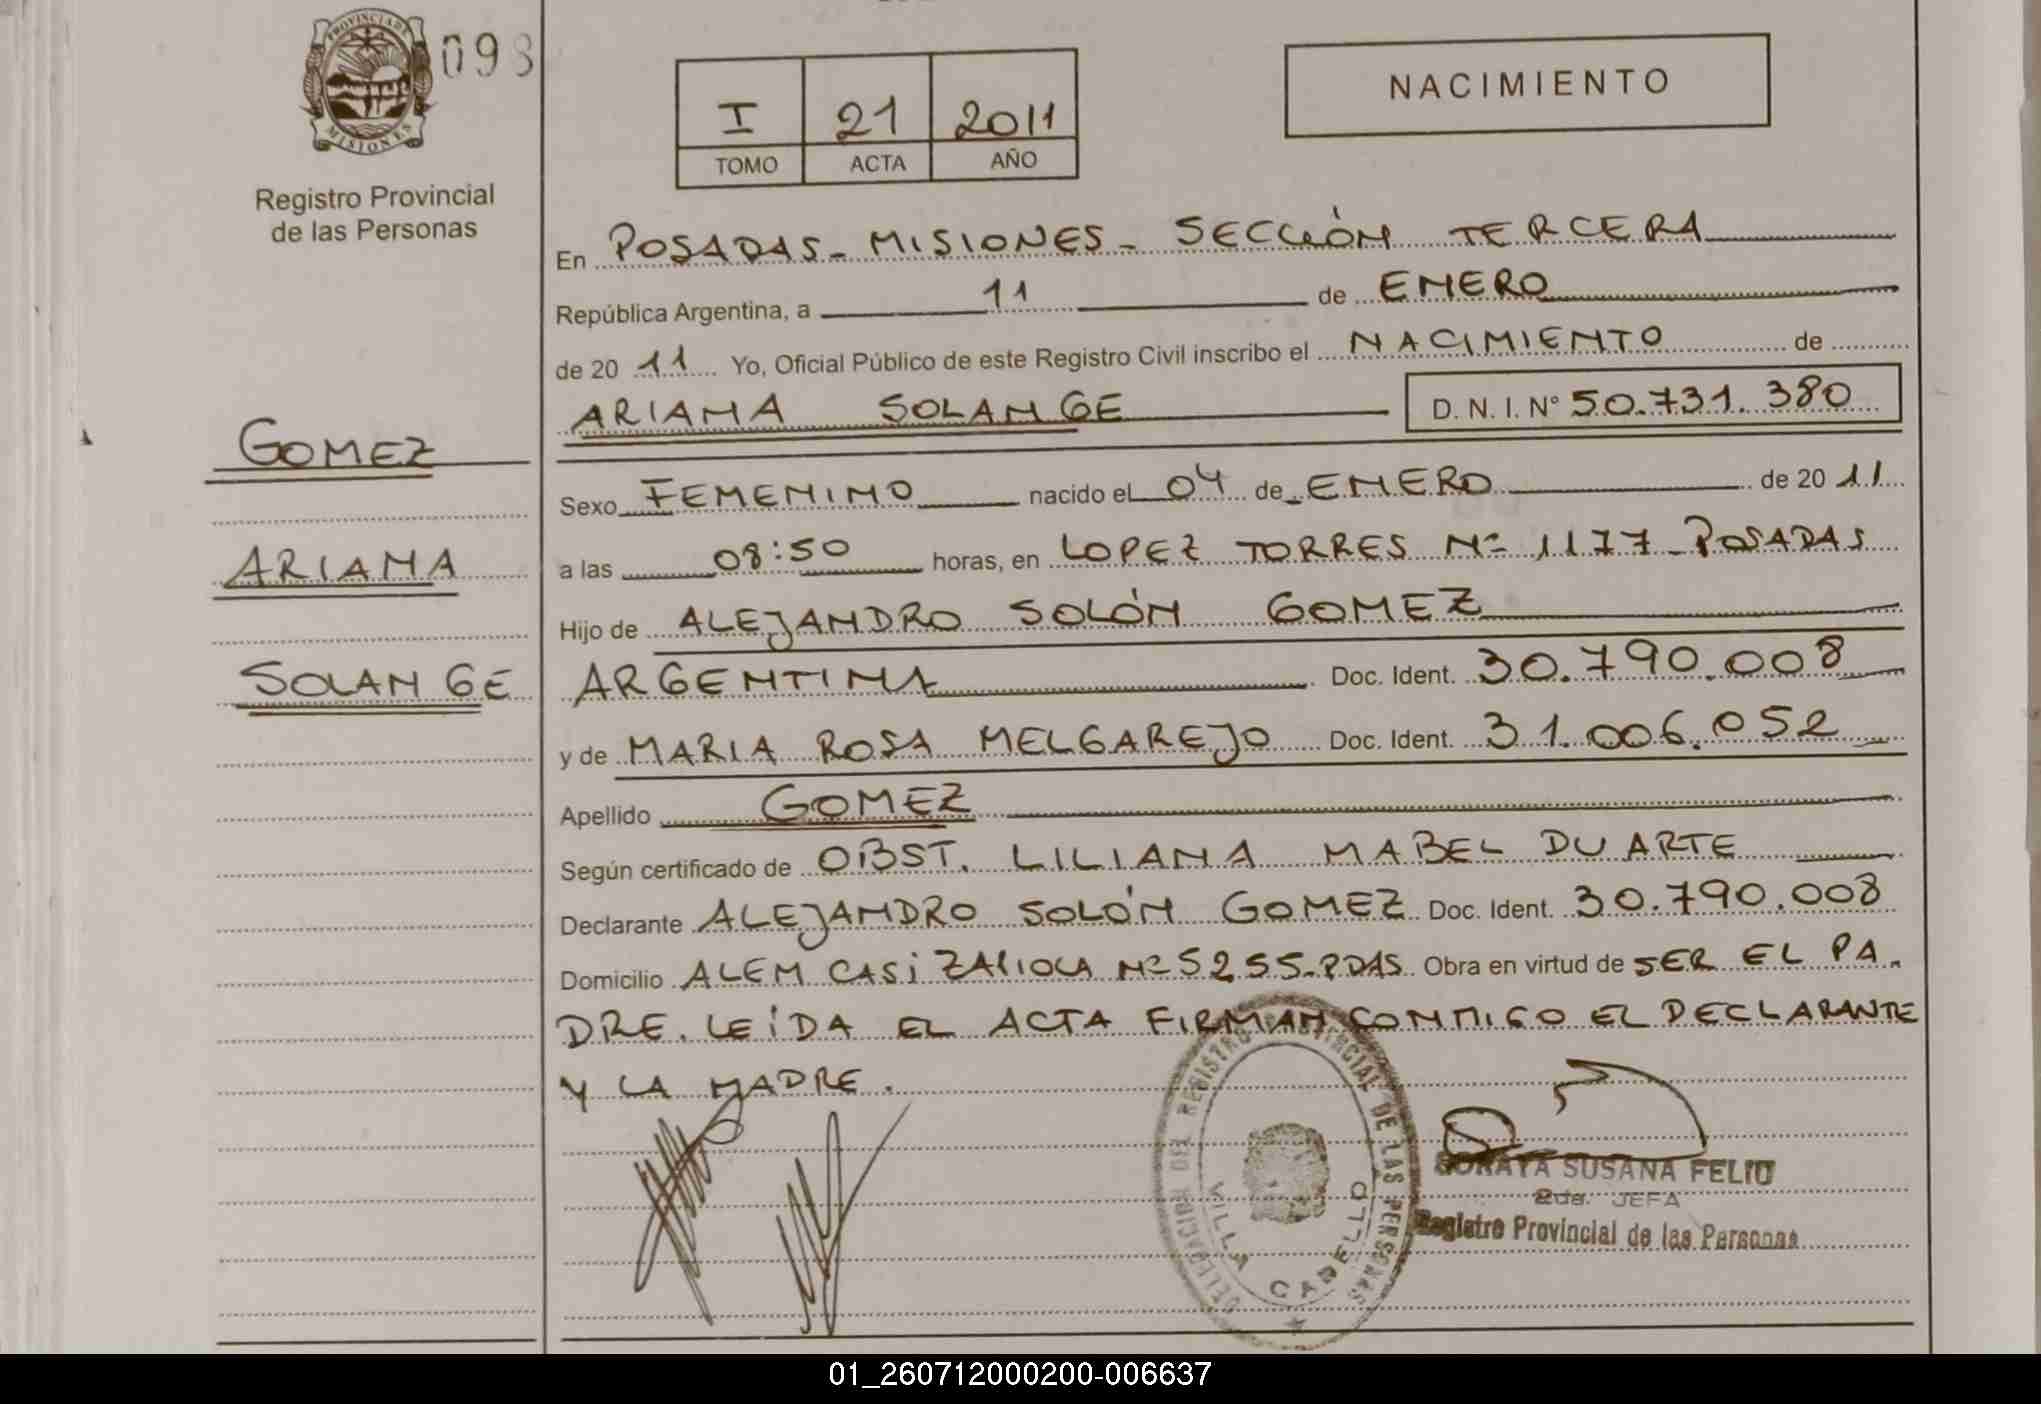 PROVINCIA DE
MISIONES
098
Registro Provincial
de las Personas
I 21 2011
TOMO ACTA AÑO
NACIMIENTO
En POSADAS - MISIONES - SECCIÓN TERCERA
República Argentina, a 11 de ENERO
de 20 11 Yo, Oficial Público de este Registro Civil inscribo el NACIMIENTO de
ARIANA SOLANGE D. N. I. N° 50.731.380
GOMEZ
ARIANA
SOLANGE
Sexo FEMENINO nacido el 04 de ENERO de 20 11
a las 08:50 horas, en LOPEZ TORRES Nº 1177 - POSADAS
Hijo de ALEJANDRO SOLÓN GOMEZ
ARGENTINA Doc. Ident. 30.790.008
y de MARIA ROSA MELGAREJO Doc. Ident. 31.006.052
Apellido GOMEZ
Según certificado de OBST. LILIANA MABEL DUARTE
Declarante ALEJANDRO SOLÓN GOMEZ Doc. Ident. 30.790.008
Domicilio ALEM CASI Nº 5255 - PDAS Obra en virtud de SER EL PA-
DRE. LEÍDA EL ACTA FIRMAN CONMIGO EL DECLARANTE
Y LA MADRE.
DELEGACION DEL REGISTRO PROVINCIAL DE LAS PERSONAS
VILLA CABELLO
SORAYA SUSANA FELIU
2da. JEFA
Registro Provincial de las Personas
01_260712000200-006637